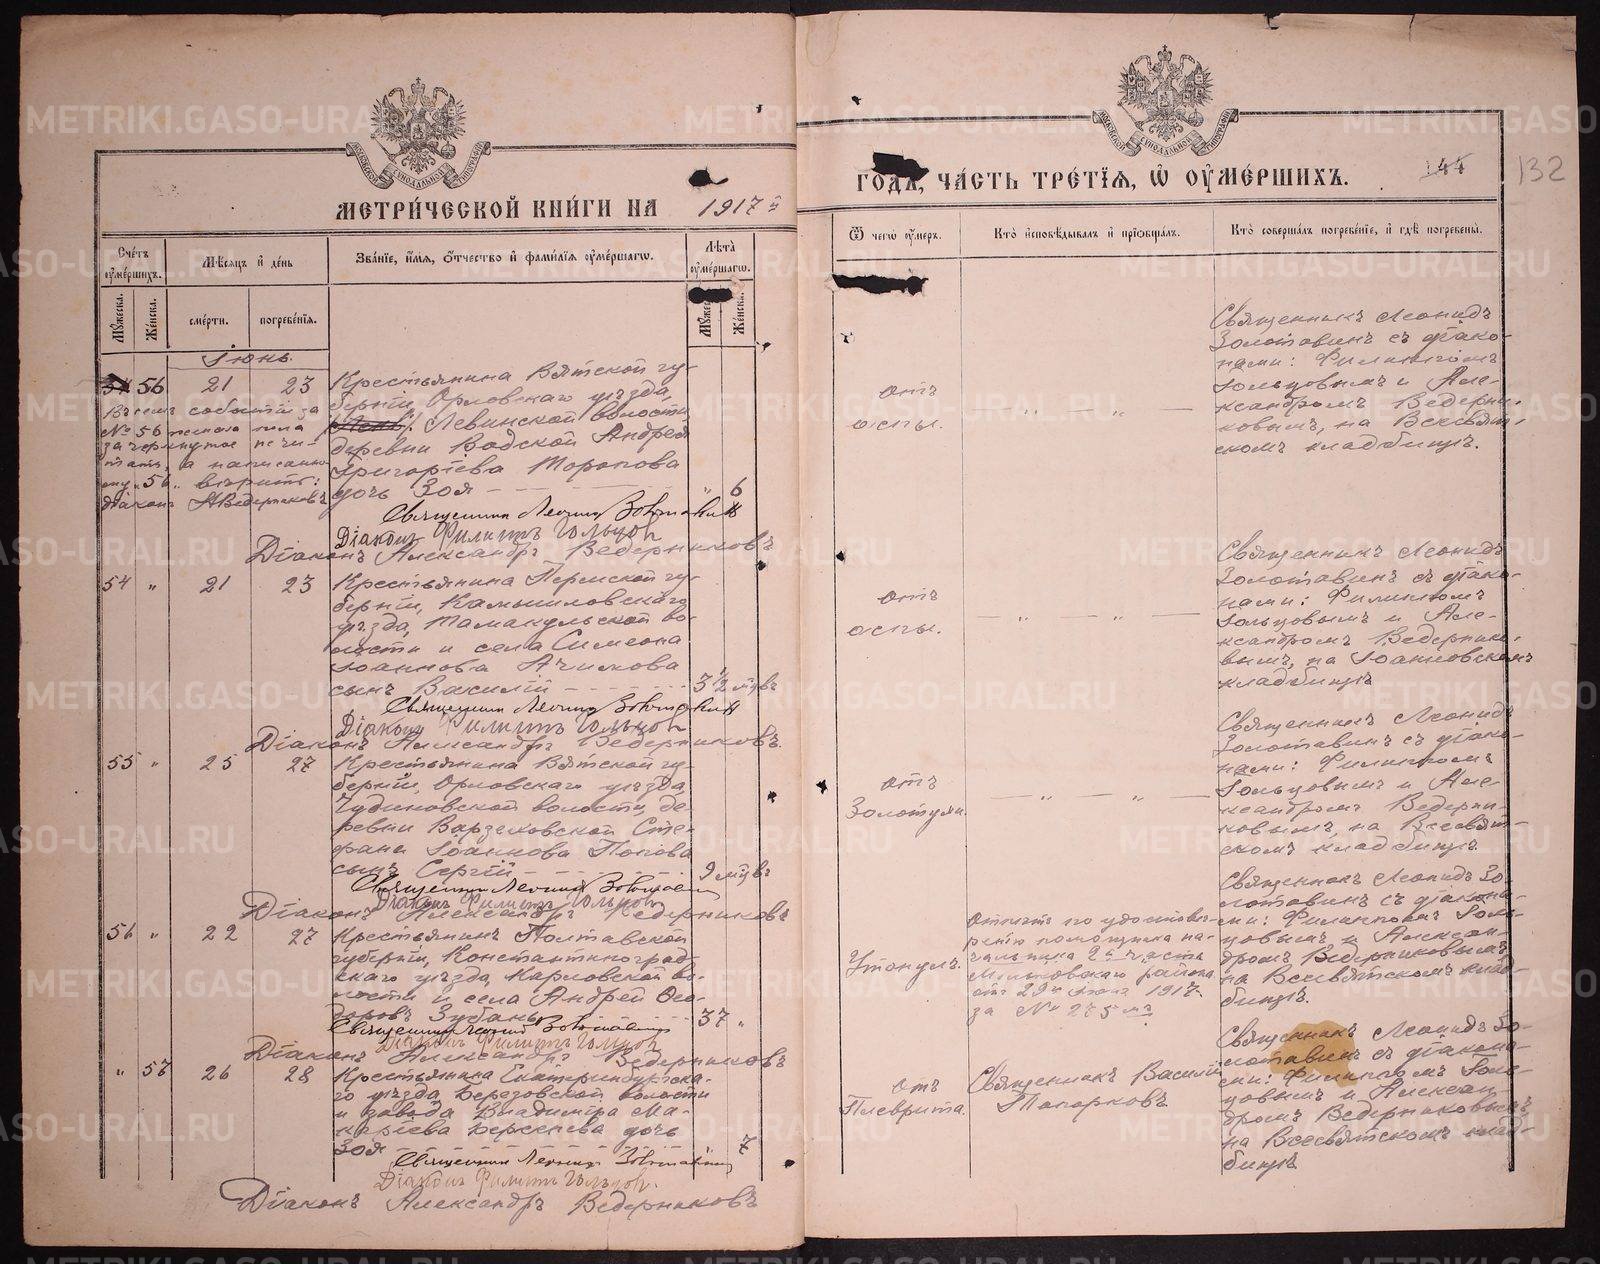 МЕТРИ́ЧЕСКОЙ КНИ́ГИ НА 1917 й
ГОДЪ, ЧА́СТЬ ТРЕ́ТІѦ, Ѡ҆ ОУ҆МЕ́РШИХЪ.
144 132
Сче́тъ оу҆ме́ршихъ.
Мужеска.
Же́нска.
Мѣсяцъ и҆ де́нь
сме́рти.
погребе́нїѧ.
Зва́нїе, и҆́мѧ, ѻ҆́тчество и҆ фами́лїѧ оу҆ме́ршагѡ.
Лѣ́та оу҆ме́ршагѡ.
Мужеска.
Же́нска.
Ѿ чегѡ̀ оу҆́меръ.
Кто̀ и҆сповѣ́дывалъ и҆ прїѡбща́лъ.
Кто̀ соверша́лъ погребе́нїе, и҆ гдѣ̀ погребены̀.
Іюнь.
56 21 23
Въ семъ событіи за
№ 56
зачеркнутое не чи-
тать, а написанно-
му „56„ вѣрить:
діаконъ А Ведерниковъ
Крестьянина Вятской гу-
берніи, Орловскаго уѣзда,
Левинской волости,
деревни Водской Андрея
Григоріева Торопова
дочь Зоя — „ 6
Священникъ Леонидъ Золотавинъ
Діаконъ Филиппъ Гольцовъ
Діаконъ Александръ Ведерниковъ
отъ
оспы.
— „ — „ —
Священникъ Леонидъ
Золотавинъ съ діако-
нами: Филиппомъ
Гольцовымъ и Але-
ксандромъ Ведерни-
ковымъ, на Всесвят-
скомъ кладбищѣ.
54 „ 21 23
Крестьянина Пермской гу-
берніи, Камышловскаго
уѣзда, Тамакульской во-
лости и села Симеона
Іоаннова Ачимова
сынъ Василій — 3½ мцвъ
Священникъ Леонидъ Золотавинъ
Діаконъ Филиппъ Гольцовъ
Діаконъ Александръ Ведерниковъ.
отъ
оспы.
— „ — „ —
Священникъ Леонидъ
Золотавинъ съ діако-
нами: Филиппомъ
Гольцовымъ и Але-
ксандромъ Ведернико-
вымъ, на Іоанновскомъ
кладбищѣ
55 „ 25 27
Крестьянина Вятской гу-
берніи, Орловскаго уѣзда,
Чудиновской волости, де-
ревни Варзеховской Сте-
фана Іоаннова Попова
сынъ Сергій — 9 мцвъ
Священникъ Леонидъ Золотавинъ
Діаконъ Филиппъ Гольцовъ
Діаконъ Александръ Ведерниковъ
отъ
Золотухи.
— „ — „ —
Священникъ Леонидъ
Золотавинъ съ діако-
нами: Филиппомъ
Гольцовымъ и Але-
ксандромъ Ведерни-
ковымъ, на Всесвят-
скомъ кладбищѣ.
56 „ 22 27
Крестьянинъ Полтавской
губерніи, Константиноград-
скаго уѣзда, Карловской во-
лости и села Андрей Ѳео-
доровъ Зубань 37 „
Священникъ Леонидъ Золотавинъ
Діаконъ Филиппъ Гольцовъ
Діаконъ Александръ Ведерниковъ
Утонулъ.
Отпѣтъ по удостовѣ-
ренію помощника на-
чальника 2й части
района
отъ 29го іюня 1917 г.
за № 275 мъ
Священникъ Леонидъ Зо-
лотавинъ съ діакона-
ми: Филиппомъ Голь-
цовымъ и Алексан-
дромъ Ведерниковымъ,
на Всесвятскомъ клад-
бищѣ.
„ 57 26 28
Крестьянина Екатеринбургска-
го уѣзда, Березовской волости
и завода Владиміра Ма-
каріева Берсенева дочь
Зоя — 7
Священникъ Леонидъ Золотавинъ
Діаконъ Филиппъ Гольцовъ.
Діаконъ Александръ Ведерниковъ
отъ
Плеврита.
Священникъ Василій
Топорковъ
Священникъ Леонидъ Зо-
лотавинъ съ діакона-
ми: Филиппомъ Голь-
цовымъ и Алексан-
дромъ Ведерниковымъ,
на Всесвятскомъ клад-
бищѣ
METRIKI.GASO-URAL.RU